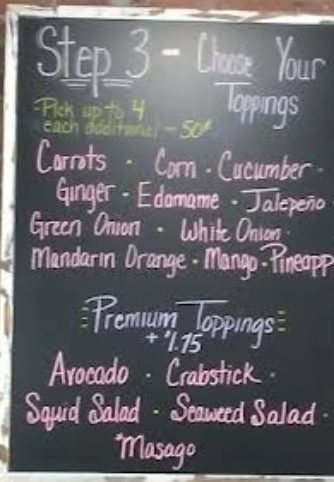 Step 3 - Choose Your
Toppings
Pick up to 4
each additional - 50¢
Carrots · Corn · Cucumber ·
Ginger · Edamame · Jalepeño ·
Green Onion · White Onion ·
Mandarin Orange · Mango · Pineapp
Premium Toppings
+ $1.75
Avocado · Crabstick ·
Squid Salad · Seaweed Salad ·
*Masago